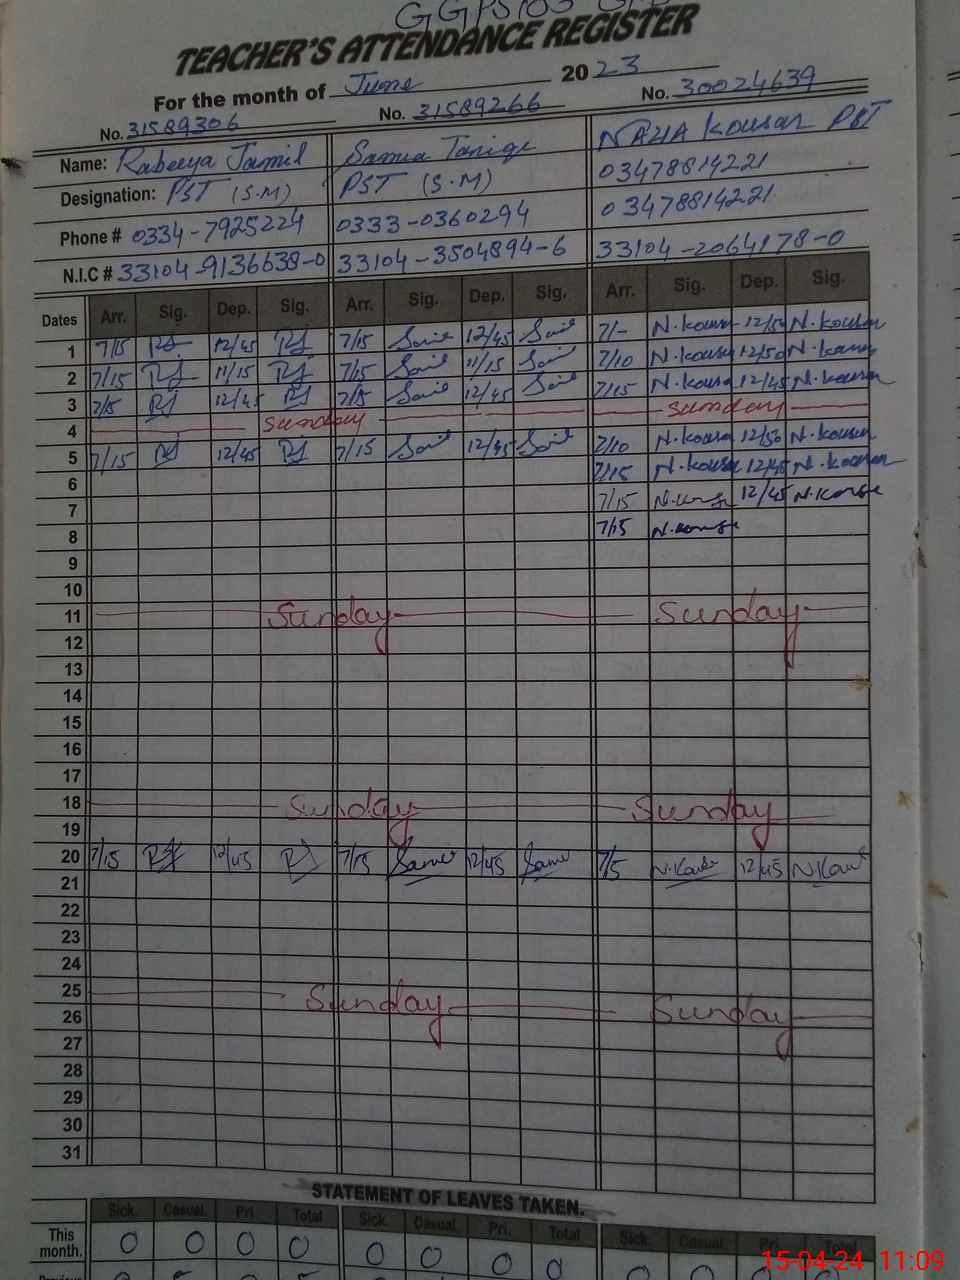 TEACHER'S ATTENDANCE REGISTER
For the month of June 2023
No. 31589306 No. 31589266 No. 30024639
Name: Rabeeya Jamil Samia Tariq NAZIA Kousar PST
Designation: PST (S.M) PST (S.M) 03478814221
Phone # 0334-7925224 0333-0360294 03478814221
N.I.C # 33104-9136638-0 33104-3504894-6 33104-2064178-0
Dates Arr. Sig. Dep. Sig. Arr. Sig. Dep. Sig. Arr. Sig. Dep. Sig.
1 7/15 RJ 12/45 RJ 7/15 12/45 7/- N.kousar 12/50 N.kousar
2 7/15 RJ 11/15 RJ 7/15 11/15 7/10 N.kousar 12/50 N.kousar
3 7/15 RJ 12/45 RJ 7/15 12/45 7/15 N.kousar 12/45 N.kousar
4 Sunday Sunday
5 7/15 RJ 12/45 RJ 7/15 12/45 7/10 N.kousar 12/50 N.kousar
6 7/15 N.kousar 12/45 N.kousar
7 7/15 12/45
8 7/15
9
10
11 Sunday Sunday
12
13
14
15
16
17
18 Sunday Sunday
19
20 7/15 RJ 12/45 RJ 7/15 12/45 7/5 12/45
21
22
23
24
25 Sunday Sunday
26
27
28
29
30
31
STATEMENT OF LEAVES TAKEN.
Sick. Casual. Pri. Total Sick. Casual. Pri. Total Sick. Casual. Pri. Total
This month. 0 0 0 0 0 0 0 0
15-04-24 11:09